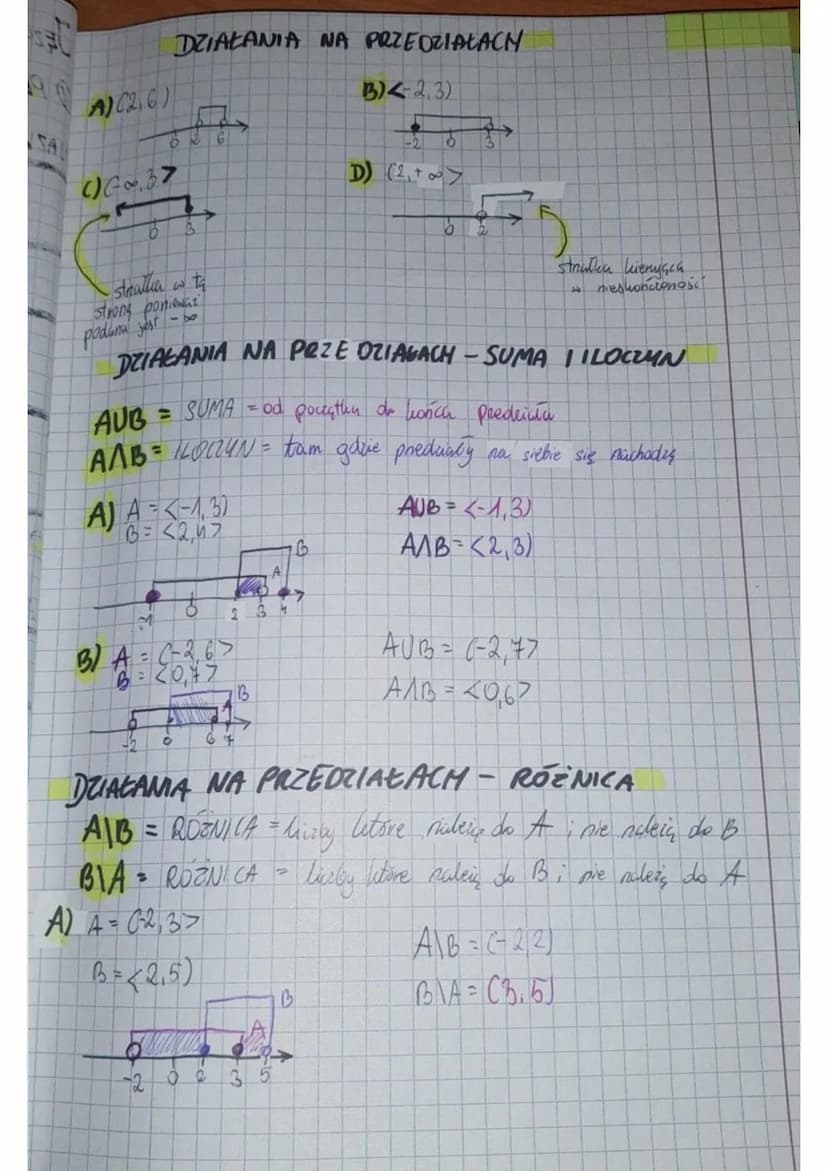 DZIAŁANIA NA PRZEDZIAŁACH
A) (2,6)
B) <-2,3)
0 2 6
-2 0 3
C) (-∞,3>
D) (2,+∞>
0 3
0 2
strzałka w tą
stronę ponieważ
podana jest -∞
strzałka kierująca
w nieskończoność
DZIAŁANIA NA PRZEDZIAŁACH - SUMA I ILOCZYN
AUB = SUMA = od początku do końca przedziału
A∩B = ILOCZYN = tam gdzie przedziały na siebie się nachodzą
A) A = <-1,3)
B = <2,4>
AUB = <-1,3)
A∩B = <2,3)
B
A
-1 0 2 3 4
B) A = (-2,6>
B = <0,7>
AUB = (-2,7>
A∩B = <0,6>
B
A
-2 0 6 7
DZIAŁANIA NA PRZEDZIAŁACH - RÓŻNICA
A\B = RÓŻNICA = liczby które należą do A i nie należą do B
B\A = RÓŻNICA = liczby które należą do B i nie należą do A
A) A = (-2,3>
B = <2,5)
A\B = (-2,2)
B\A = (3,5)
B
A
-2 0 2 3 5